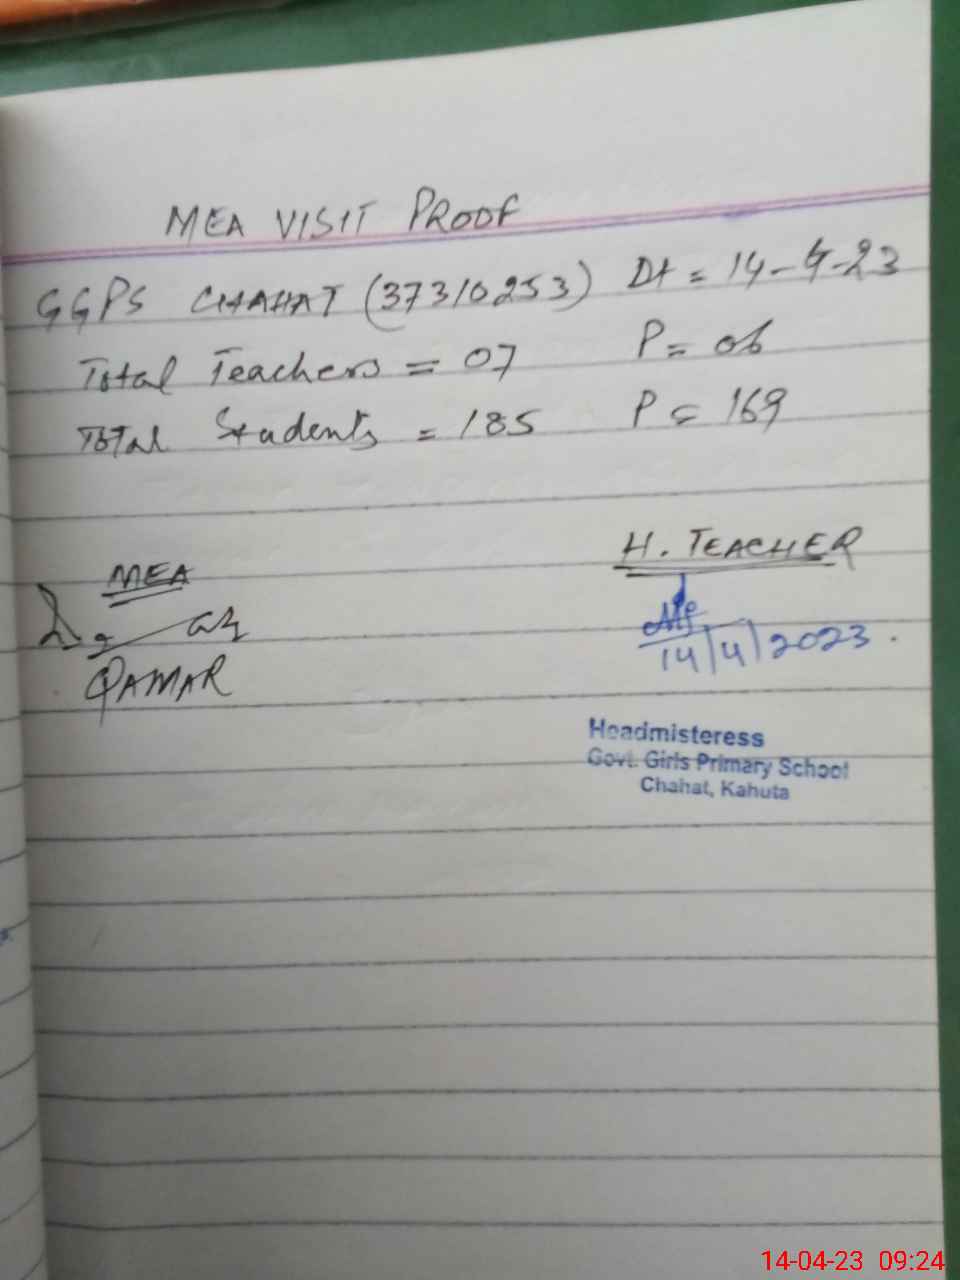 MEA VISIT PROOF
GGPS CHAHAT (37310253) Dt = 14-4-23
Total Teachers = 07 P = 06
Total Students = 185 P = 169
MEA
H. TEACHER
QAMAR
14/4/2023.
Headmisteress
Govt. Girls Primary School
Chahat, Kahuta
14-04-23 09:24